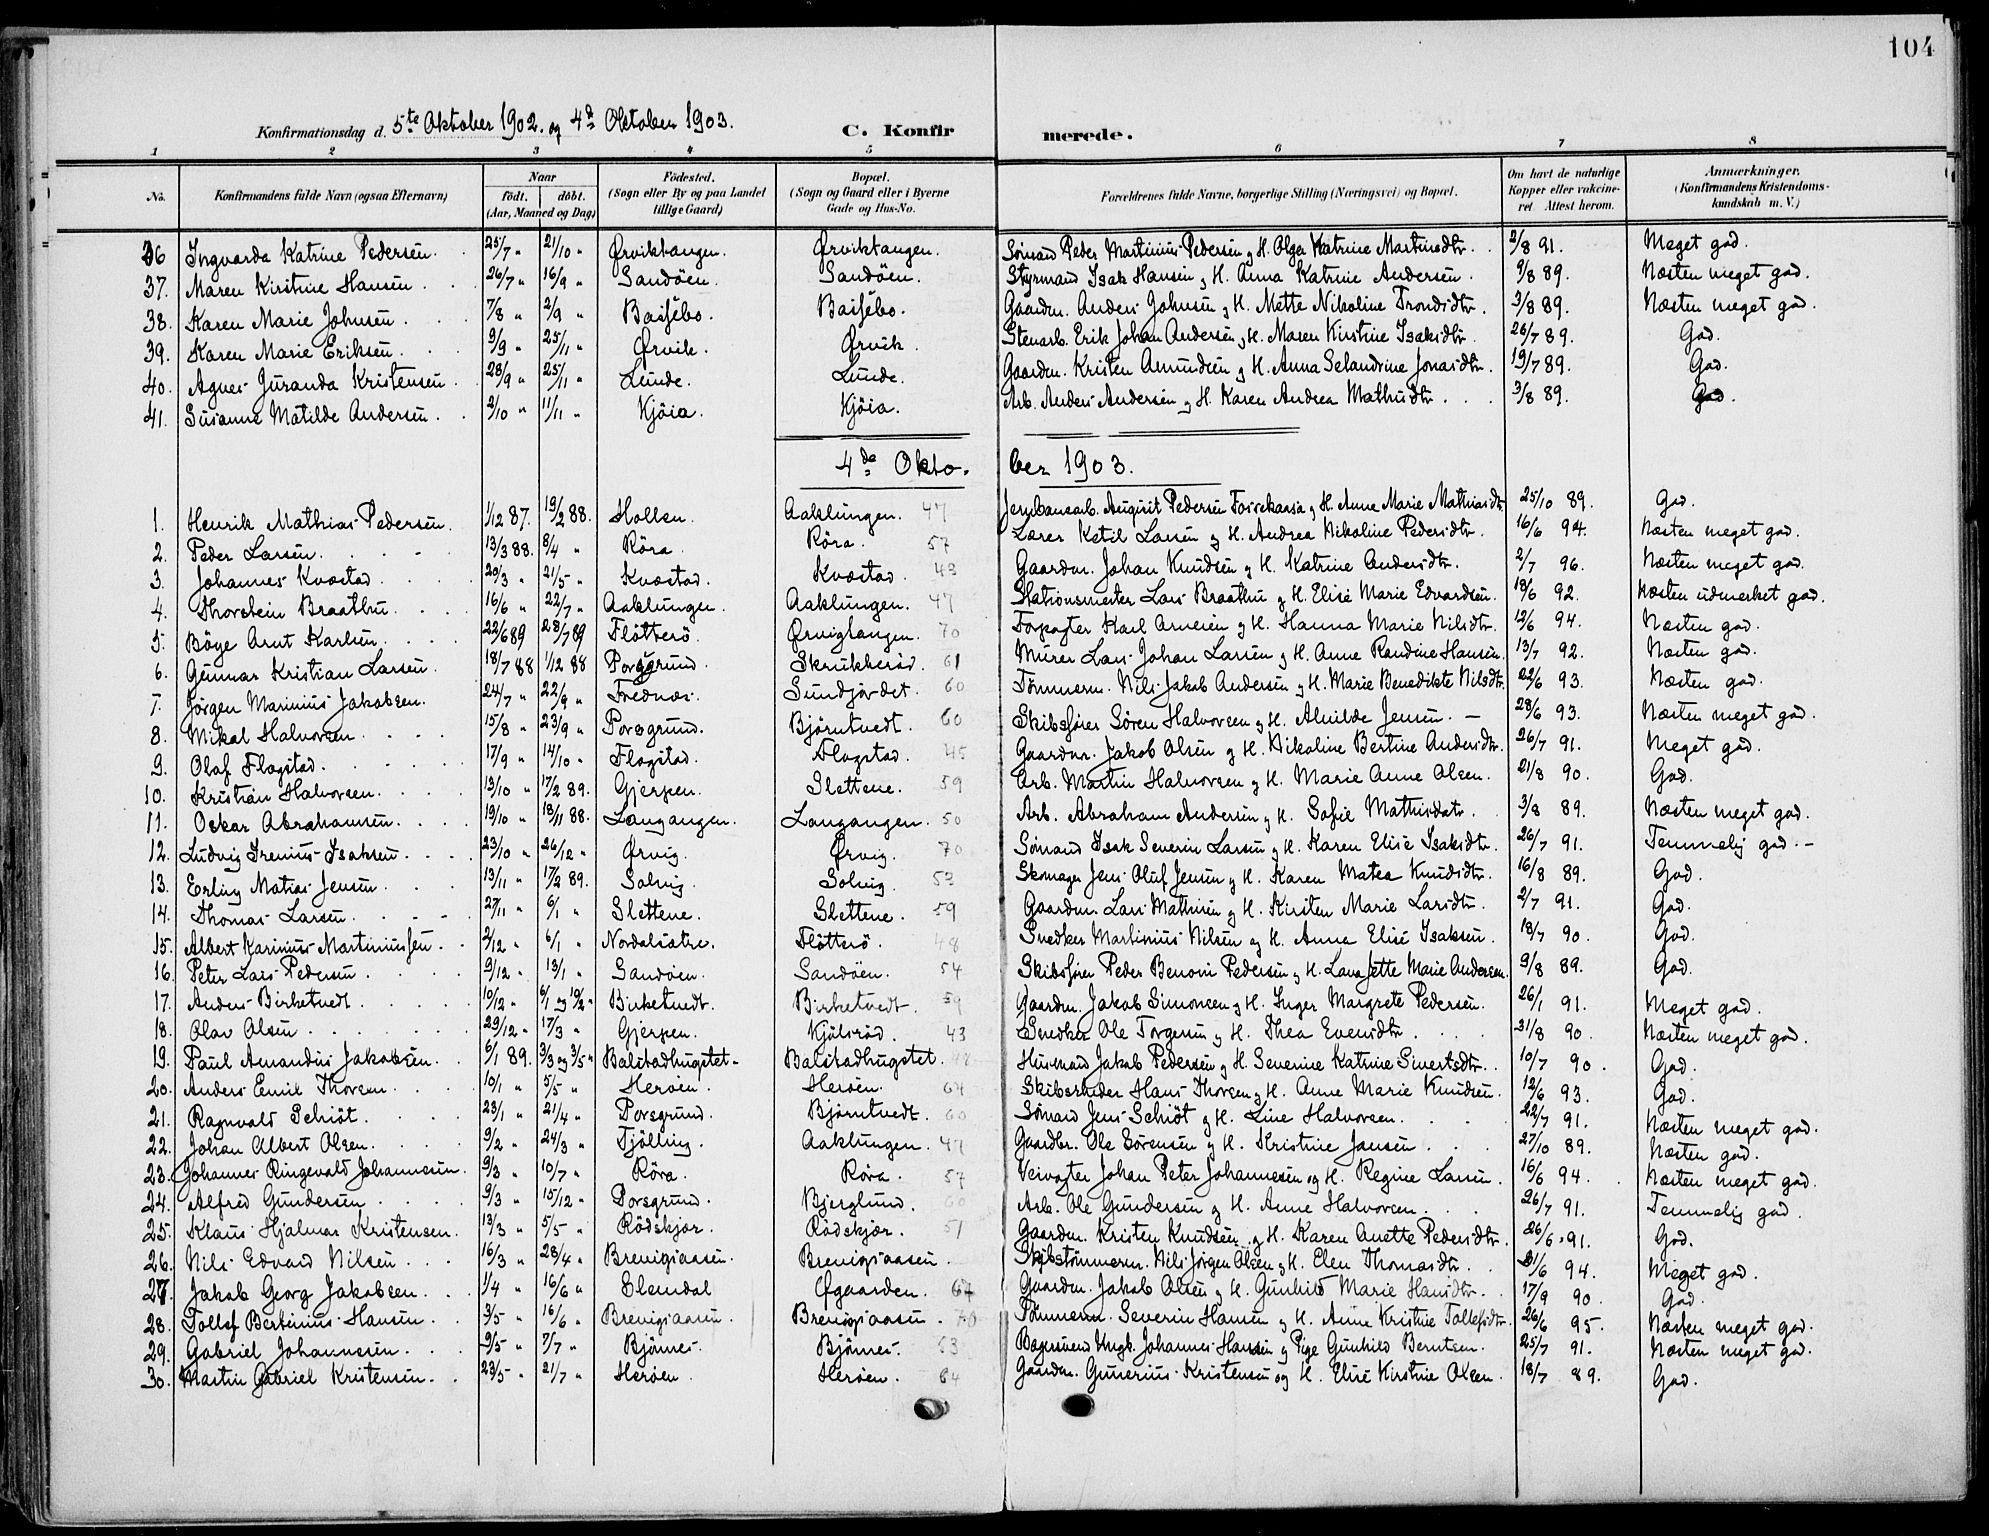 104
Konfirmationsdag d. 5te Oktober 1902. og 4de Oktober 1903. C. Konfirmerede.
1 2 3 4 5 6 7 8
No. Konfirmandens fulde Navn (ogsaa Efternavn) Naar født. døbt. (Aar, Maaned og Dag) Fødested. (Sogn eller By og paa Landet tillige Gaard) Bopæl. (Sogn og Gaard eller i Byerne Gade og Hus-No. Forældrenes fulde Navne, borgerlige Stilling (Næringsvei) og Bopæl. Om havt de naturlige Kopper eller vakcineret. Attest herom. Anmærkninger. (Konfirmandens Kristendomskundskab m. V.)
36 Ingvarda Katrine Pedersen. 25/7 " 21/10 " Ørviktangen. Ørviktangen. Sömand Peder Martinius Pedersen og H. Olga Katrine Martinsdtr. 2/8 91. Meget god.
37. Maren Kirstine Hansen. 26/7 " 16/9 " Sandöen. Sandöen. Styrmand Isak Hansen og H. Anna Katrine Andersen. 9/8 89. Næsten meget god.
38. Karen Marie Johnsen. 7/8 " 2/9 " Bassebo. Bassebo. Gaardm. Anders Johnsen og H. Mette Nikoline Trondsdtr. 3/8 89. Næsten meget god.
39. Karen Marie Eriksen. 9/9 " 25/11 " Ørvik. Ørvik. Stenarb. Erik Johan Andersen og H. Maren Kirstine Isaksdtr. 26/7 89. God.
40. Agnes Juranda Kristensen. 28/9 " 25/11 " Lunde. Lunde. Gaardm. Kristen Amundsen og H. Anna Selandrine Jonasdtr. 19/7 89. God.
41. Susanne Matilde Andersen. 2/10 " 11/11 " Kjöia. Kjöia. Arb. Anders Andersen og H. Karen Andrea Mathisdtr. 3/8 89. God.
4de Oktober 1903.
1. Henrik Mathias Pedersen. 1/12 87. 19/2 88. Hollen. Aaklungen. 47 Jernbanearb. August Pedersen og H. Anne Marie Mathiasdtr 25/10 89. God.
2. Peder Larsen. 13/3 88. 8/4 " Röra. Röra. 57 Lærer Ketil Larsen og H. Andrea Nikoline Pedersdtr. 16/6 94. Næsten meget god.
3. Johannes Kvæstad. 20/3 " 21/5 " Kvæstad. Kvæstad. 43 Gaardm. Johan Knudsen og H. Katrine Andersdtr. 2/7 96. Næsten meget god.
4. Thorstein Braathu. 16/6 " 22/7 " Aaklungen. Aaklungen. 47 Stationsmester Lars Braathu og H. Elise Marie Edvardsen. 19/6 92. Næsten udmerket god.
5. Böye Arnt Karlsen. 22/6 89 28/7 89 Flötterö. Ørvigtangen. 70 Forpagter Karl Arnesen og H. Hanna Marie Nilsdtr. 12/6 94. Næsten god.
6. Gunnar Kristian Larsen. 18/7 88 1/12 88 Porsgrund. Skrukkeröd. 61 Murer Lars Johan Larsen og H. Anne Randine Hansen. 13/7 92. Næsten god.
7. Jörgen Marinius Jakobsen. 24/7 " 22/9 " Frednæs. Sundjordet. 60 Tömmerm. Nils Jakob Andersen og H. Marie Benedikte Nilsdtr. 22/6 93. Næsten god.
8. Mikal Halvorsen. 15/8 " 23/9 " Porsgrund. Björntvedt. 60 Skibsförer Sören Halvorsen og H. Alvilde Jensen. 28/6 93. Næsten meget god.
9. Olaf Flogstad. 17/9 " 14/10 " Flogstad. Flogstad. 45 Gaardm. Jakob Olsen og H. Nikoline Bertine Andersdtr. 26/7 91. Meget god.
10. Kristian Halvorsen. 13/10 " 17/2 89. Gjerpen. Slettene. 59 Arb. Martin Halvorsen og H. Marie Anne Olsen. 21/8 90. God.
11. Oskar Abrahamsen. 19/10 " 18/11 88. Langangen. Langangen. 50 Arb. Abraham Andersen og H. Sofie Mathisdatr. 3/8 89. Næsten meget god.
12. Ludvig Irenius Isaksen. 23/10 " 26/12 " Ørvig. Ørvig. 70 Sömand Isak Severin Larsen og H. Karen Elise Isaksdtr. 26/7 91. Temmelig god.
13. Erling Matias Jensen. 13/11 " 17/2 89. Solvig. Solvig. 53 Skomager Jens Oluf Jensen og H. Karen Matea Knudsdtr. 16/8 89. God.
14. Thomas Larsen. 27/11 " 6/1 " Slettene. Slettene. 59 Gaardm. Lars Mathisen og H. Kirsten Marie Larsdtr. 2/7 91. God.
15. Albert Karinius Martiniussen. 2/12 " 6/1 " Nordalsætre. Flötterö. 48 Snedker Martinius Nilsen og H. Anna Elise Isaksen. 18/7 90. God.
16. Peter Lars Pedersen. 9/12 " 13/1 " Sandöen. Sandöen. 54 Skibsförer Peder Benoni Pedersen og H. Lava Jette Marie Andersen. 9/8 89. God.
17. Anders Birketvedt. 10/12 " 6/1 og 10/2 " Birketvedt. Birketvedt. 59 Gaardm. Jakob Simonsen og H. Inger Margrete Pedersen. 26/1 91. Meget god.
18. Olav Olsen. 29/12 " 17/3 " Gjerpen. Kjölsröd. 43 Snedker Ole Torgersen og H. Thea Evensdtr. 31/8 90. Næsten meget god.
19. Paul Amandus Jakobsen. 6/1 89. 3/3 og 3/5 " Balstadhugstet. Balstadhugstet. 48 Husmand Jakob Pedersen og H. Severine Katrine Sivertsdtr. 10/7 90. God.
20. Anders Emil Thorsen. 10/1 " 5/5 " Heröen. Heröen. 64 Skibsrheder Hans Thorsen og H. Anne Marie Knudsen. 12/6 93. God.
21. Ragnvald Schiöt. 23/1 " 21/4 " Porsgrund. Björntvedt. 60 Sömand Jens Schiöt og H. Line Halvorsen. 22/7 91. Næsten meget god.
22. Johan Albert Olsen. 9/2 " 24/3 " Tjölling. Aaklungen. 47 Gaardbr. Ole Sörensen og H. Kristine Jansen. 27/10 89. Næsten god.
23. Johannes Ringevald Johannesen. 9/3 " 10/7 " Röra. Röra. 57 Veivogter Johan Peter Johannesen og H. Regine Larsen. 16/6 94. Næsten meget god.
24. Alfred Gundersen. 9/3 " 15/12 " Porsgrund. Bjerglund. 60 Arb. Ole Gundersen og H. Anne Halvorsen. 26/7 91. Temmelig god.
25. Klaus Hjalmar Kristensen. 13/3 " 5/5 " Rödskjær. Rödskjær. 51 Gaardm. Kristen Knudsen og H. Karen Anette Pedersdtr. 26/6 91. God.
26. Nils Edvard Nilsen. 16/3 " 28/4 " Brevigsaasen. Brevigsaasen. Skibstömmerm. Nils Jörgen Olsen og H. Elen Thomasdtr. 21/6 94. Meget god.
27. Jakob Georg Jakobsen. 1/4 " 16/6 " Elendal Øgaarden. 67 Gaardm. Jakob Olsen og H. Gunhild Marie Hansdtr. 17/9 90. God.
28. Tollef Bertinius Hansen. 3/5 " 16/6 " Brevigsaasen. Brevigsaasen. 70 Tömmerm. Severin Hansen og H. Anne Kristine Tollefsdtr. 26/6 95. Næsten meget god.
29. Gabriel Johannesen. 9/5 " 7/7 " Björnes. Björnes. 63 Bagersvend Ungk. Johannes Hansen og Pige Gunhild Berntsen. 25/7 91. Næsten meget god.
30. Martin Gabriel Kristensen. 23/5 " 21/7 " Heröen. Heröen. 64 Gaardm. Gunerius Kristensen og H. Elise Kirstine Olsen. 18/7 89. God.